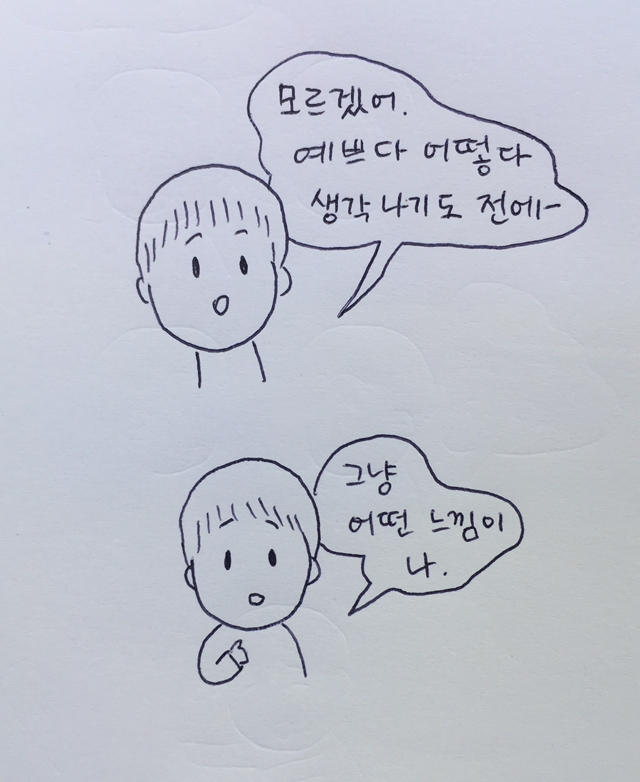 모르겠어.
예쁘다 어떻다
생각 나기도 전에-
그냥
어떤 느낌이
나.